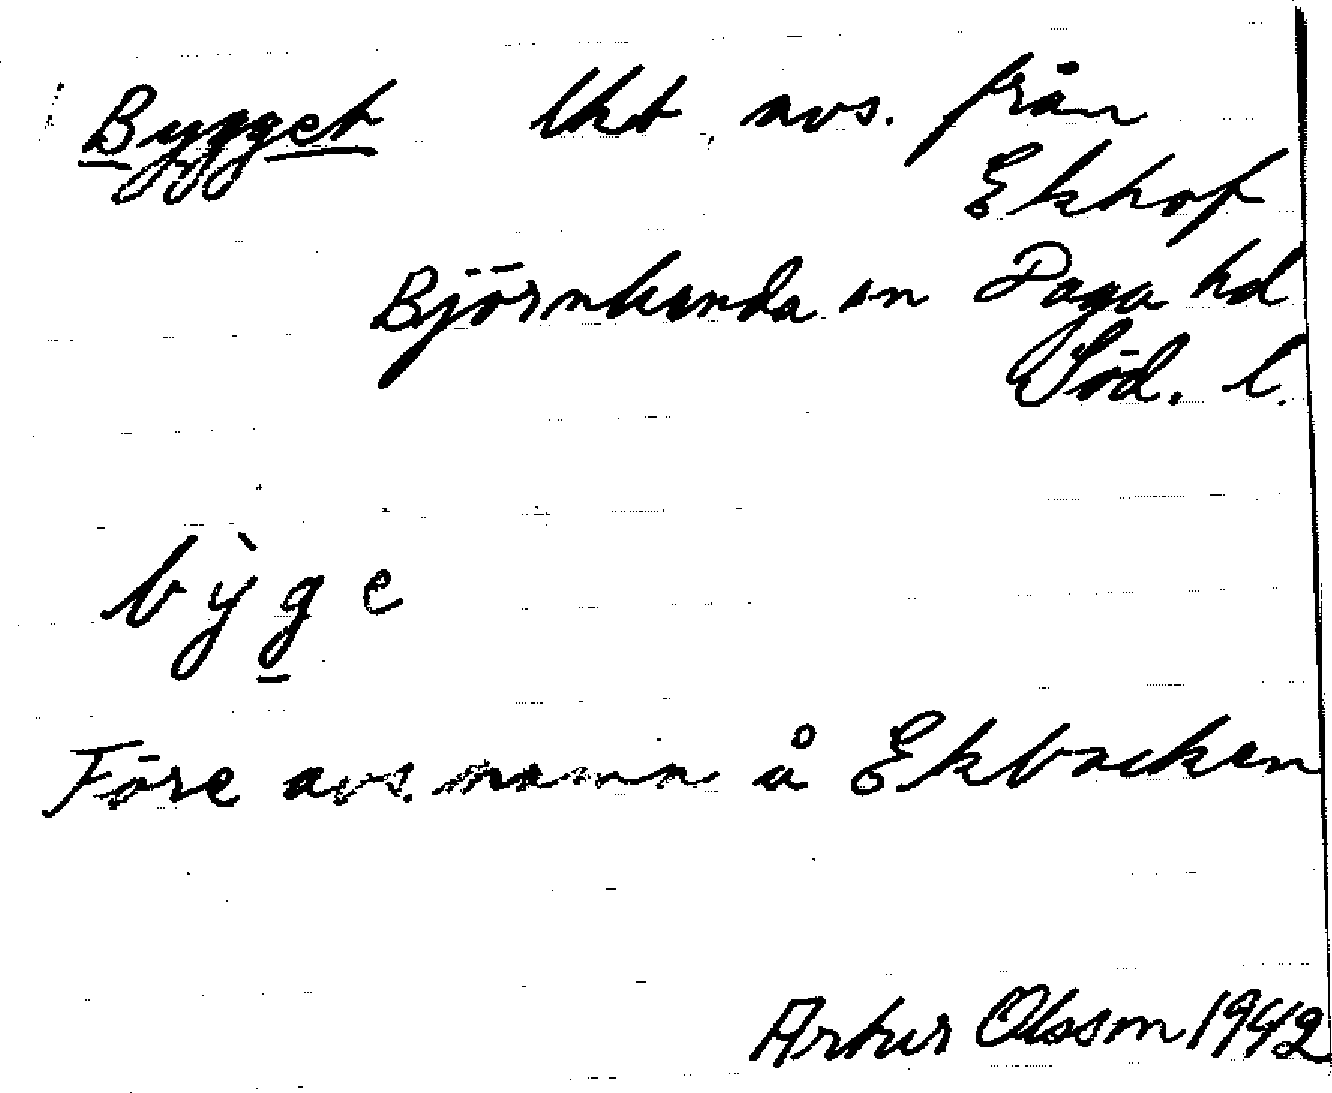 Bygget lht avs. från
Ekhof
Björnlunda sn Daga hd
Söd. l.
bỳge
Före avs. namn å Ekbacken
Artur Olsson 1942